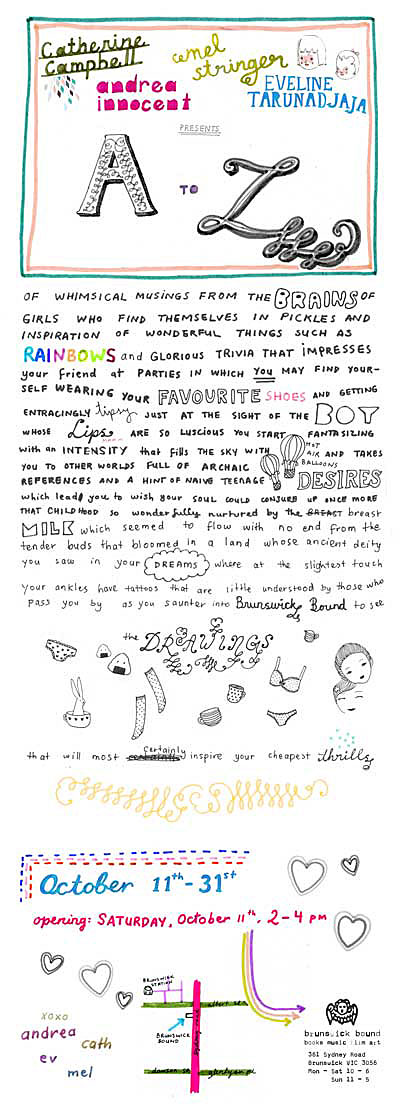 Catherine Campbell
emel stringer
andrea innocent
EVELINE TARUNADJAJA
PRESENTS
A TO Z
OF WHIMSICAL MUSINGS FROM THE BRAINS OF
GIRLS WHO FIND THEMSELVES IN PICKLES AND
INSPIRATION OF WONDERFUL THINGS SUCH AS
RAINBOWS and GLORIOUS TRIVIA THAT IMPRESSES
your friend at PARTIES IN WHICH YOU MAY FIND YOUR-
SELF WEARING YOUR FAVOURITE SHOES AND GETTING
ENTRACINGLY tipsy JUST AT THE SIGHT OF THE BOY
WHOSE Lips ARE SO LUSCIOUS YOU START FANTASIZING
with an INTENSITY that fills THE SKY WITH HOT AIR BALLOONS AND TAKES
YOU TO OTHER WORLDS FULL OF ARCHAIC
REFERENCES AND A HINT OF NAIVE TEENAGE DESIRES
which leads you to wish your SOUL COULD CONJURE UP ONCE MORE
THAT CHILDHOOD SO wonderfully nurtured by the BREAST breast
MILK which seemed to flow with no end from the
tender buds that bloomed in a land whose ancient deity
you saw in your DREAMS where at the slightest touch
your ankles have tattoos that are little understood by those who
pass you by as you saunter into Brunswick Bound to see
the DRAWINGS
that will most certainly inspire your cheapest thrills
October 11th-31st
opening: SATURDAY, October 11th. 2-4 pm
BRUNSWICK STATION
albert st
BRUNSWICK BOUND
sydney road
dawson st glenlyon rd
xoxo
andrea
cath
ev
mel
brunswick bound
books music film art
361 Sydney Road
Brunswick VIC 3056
Mon - Sat 10 - 6
Sun 11 - 5